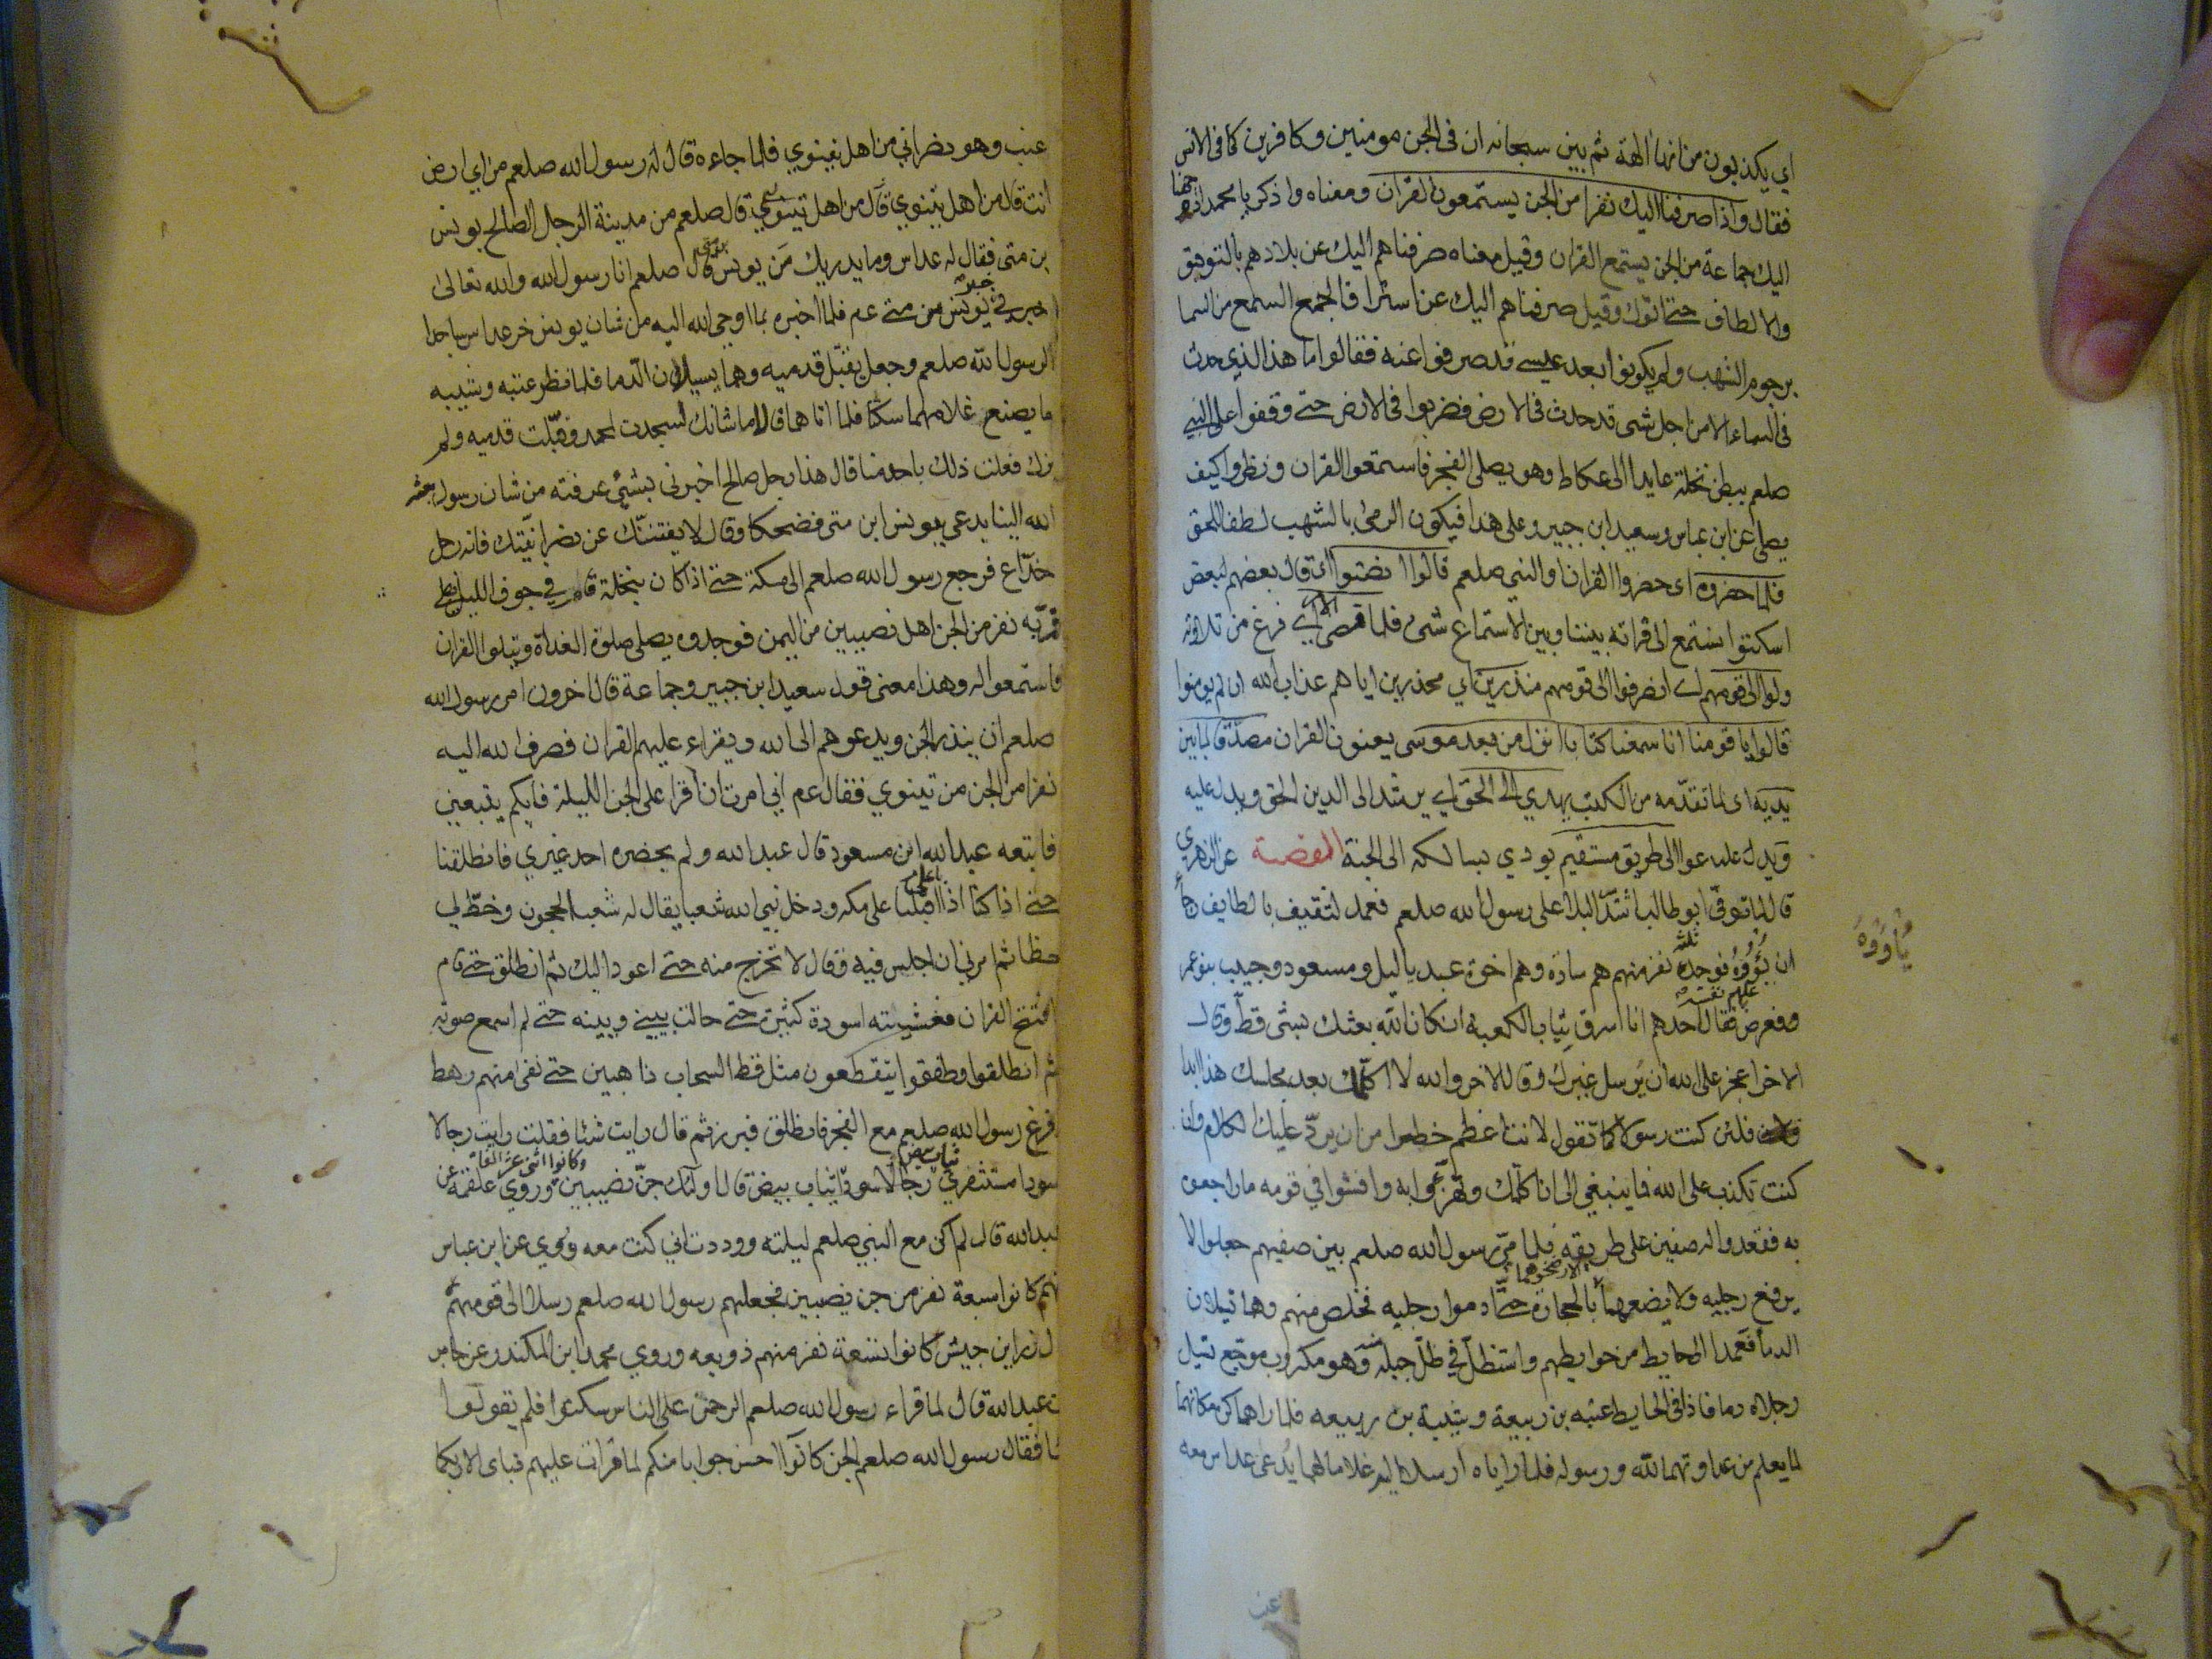 اي يكذبون من انها الهة ثم بين سبحانه ان فى الجن مومنين وكافرين كما فى الانس
فقال واذا صرفنا اليك نفرا من الجن يستمعون القران ومعناه واذكر يا محمد اذ وجهنا
اليك جماعة من الجن يستمع القران وقيل معناه صرفناهم اليك عن بلادهم بالتوفيق
والالطاف حتى اتوك وقيل صرفناهم اليك عن استراق السمع من السما
برجوم الشهب ولم يكونوا بعد عيسى قد صرفوا عنه فقالوا ما هذا الذي حدث
فى السماء الا من اجل شى قد حدث فى الارض فضربوا فى الارض حتى وقفوا على النبي
صلعم ببطن نخلة عايدا الى عكاظ وهو يصلى الفجر فاستمعوا القران ونظروا كيف
يصلى عن ابن عباس وسعيد ابن جبير وعلى هذا فيكون الرمى بالشهب لطفا للجن
فلما حضروه اى حضروا القران او النبي صلعم قالوا انصتوا اى قال بعضهم لبعض
اسكتوا نستمع الى قراته بيننا وبين الاستماع شى فلما قضى اى فرغ من تلاوته
ولوا الى قومهم اى انصرفوا الى قومهم منذرين اي محذرين اياهم عذاب الله ان لم يومنوا
قالوا يا قومنا انا سمعنا كتابا انزل من بعد موسى يعنون القران مصدقا لما بين
يديه اى لما تقدمه من الكتب يهدي الى الحق اى يرشد الى الدين الحق ويدل عليه
ويدل عليه عوا الى طريق مستقيم يودي بسالكه الى الجنة القصة عن الزهري
قال لما توفى ابو طالب اشتد البلا على رسول الله صلعم فعمد لثقيف بالطايف رجا
ان يؤوه فوجد ثلثة نفر منهم هم سادة وهم اخوة عبد ياليل ومسعود وحبيب بنو عمر
يأووه
فعرض عليهم نفسه فقال احدهم انا اسرق ثياب الكعبة ان كان الله بعثك بشى قط وقال
الاخر اعجز على الله ان يرسل غيرك وقال الاخر والله لا اكلمك بعد مجلسك هذا ابدا
فلئن كنت رسولا كما تقول لانت اعظم خطرا من ان يرد عليك الكلام وان
كنت تكذب على الله فما ينبغي الى ان اكلمك وتهزءوا به وافشوا في قومه ما راجعون
به فقعدوا له صفين على طريقه فلما مر رسول الله صلعم بين صفيهم جعلوا لا
يرفع رجليه ولا يضعهما الا رضخوهما بالحجارة حتى ادموا رجليه فخلص منهم وهما تسيلان
الدما فعمد الى حايط من حوايطهم واستظل في ظل حبلة منه وهو مكروب موجع تسيل
رجلاه دما فاذا فى الحايط عتبه بن ربيعة وشيبة بن ربيعه فلما راهما كره مكانهما
لما يعلم من عداوتهما لله ورسوله فلما راياه ارسلا اليه غلاما لهما يدعى عداس معه
عنب
عنب وهو نصراني من اهل نينوي فلما جاءه قال له رسول الله صلعم من اي ارض
انت قال من اهل نينوي قال من اهل نينوي قال صلعم من مدينة الرجل الصالح يونس
بن متى فقال له عداس وما يدريك من يونس بن متى قال صلعم انا رسول الله والله تعالى
اخبرني خبر يونس من متى عم فلما اخبره بما اوحى الله اليه من شان يونس خر عداس ساجدا
لرسول الله صلعم وجعل يقبل قدميه وهما يسيلان الدما فلما نظر عتبه وشيبه
ما يصنع غلامهما سكتا فلما اتاهما قالا ما شانك سجدت لمحمد وقبلت قدميه ولم
نرك فعلت ذلك باحد منا قال هذا رجل صالح اخبرنى بشئ عرفته من شان رسول بعثه
الله الينا يدعى يونس ابن متى فضحكا وقال لا يفتننك عن نصرانيتك فانه رجل
خداع فرجع رسول الله صلعم الى مكة حتى اذا كان بنخلة قام في جوف الليل يصلى
فمر به نفر من الجن اهل نصيبين من اليمن فوجدوه يصلى صلوة الغداة ويتلوا القران
فاستمعوا له وهذا معنى قول سعيد ابن جبير وجماعة قال اخرون امر رسول الله
صلعم ان ينذر الجن ويدعوهم الى الله ويقراء عليهم القران فصرف الله اليه
نفرا من الجن من نينوي فقال عم اني امرت ان اقرا على الجن الليلة فايكم يتبعني
فاتبعه عبد الله ابن مسعود قال عبد الله ولم يحضره احد غيري فانطلقنا
حتى اذا كنا باعلى مكه ودخل نبي الله شعبا يقال له شعب الحجون وخط لي
خطا ثم امرني ان اجلس فيه وقال لا تخرج منه حتى اعود اليك ثم انطلق حتى قام
افتتح القران فغشيته اسودة كثيرة حتى حالت بيني وبينه حتى لم اسمع صوته
ثم انطلقوا وطفقوا يتقطعون مثل قطع السحاب ذاهبين حتى بقى منهم رهط
وفرغ رسول الله صلعم مع الفجر فانطلق فبرز ثم قال رايت شئا فقلت رايت رجالا
سودا مستثفري ثياب بيض قال اولئك جن نصيبين وكانوا اثنى عشر الفا وروي علقمه عن
عبد الله قال لم اكن مع النبي صلعم ليلته ووددت اني كنت معه وروي عن ابن عباس
انهم كانوا سبعة نفر من جن نصيبين فجعلهم رسول الله صلعم رسلا الى قومهم
قال زر ابن حبيش كانوا تسعة نفر منهم زوبعه وروي محمد ابن المكندر عن جابر
بن عبد الله قال لما قراء رسول الله صلعم الرحمن على الناس سكتوا فلم يقولوا
شيا فقال رسول الله صلعم الجن كانوا احسن جوابا منكم لما قرات عليهم فباى الا ربكما